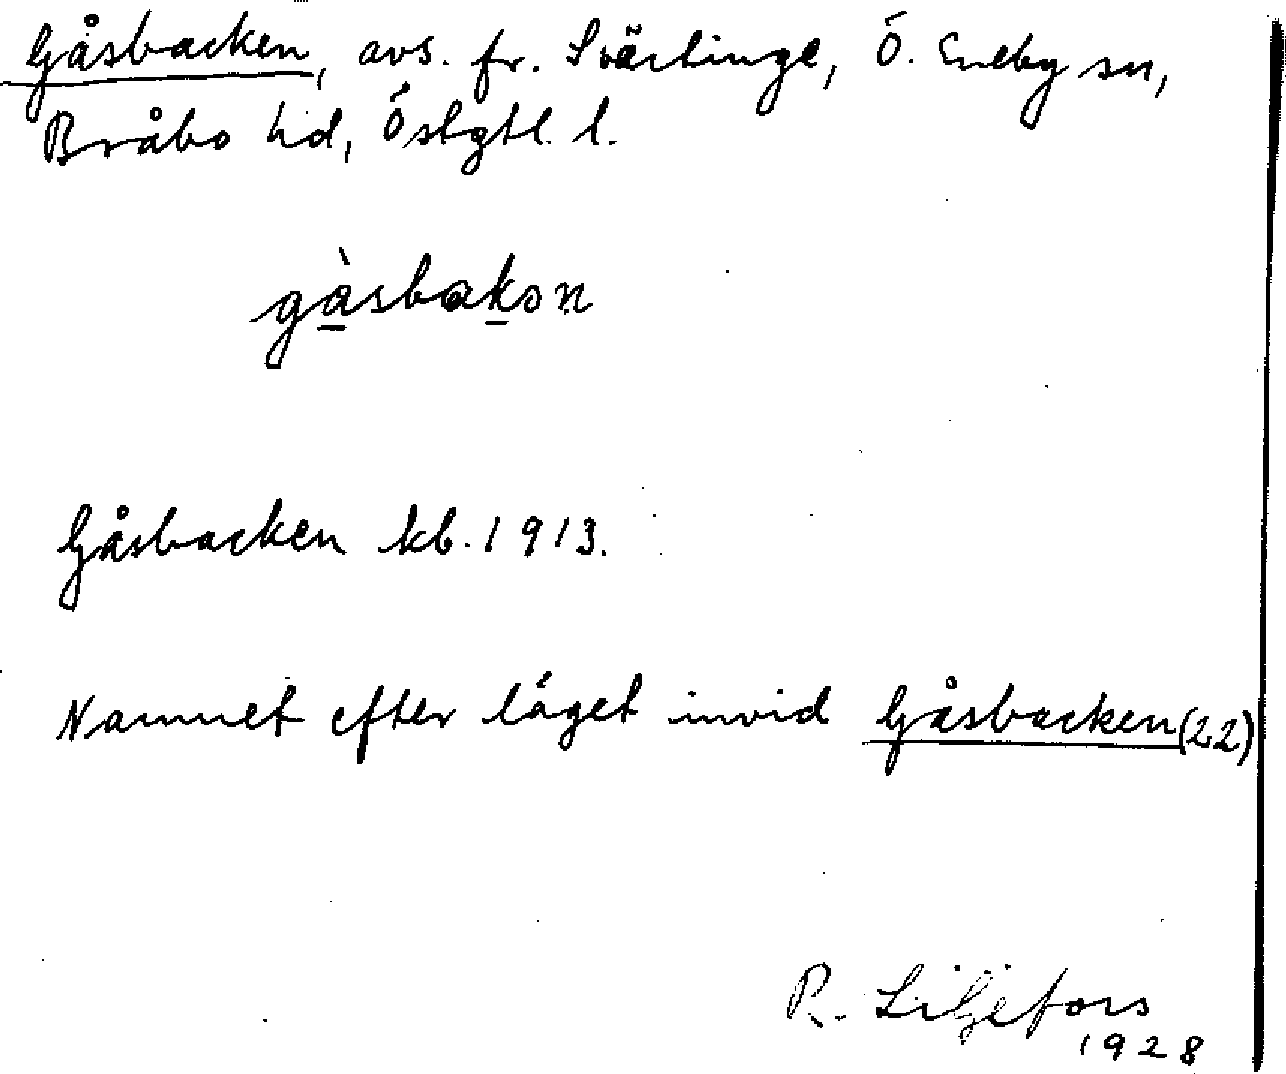 Gåsbacken, avs. fr. Svärtinge, Ö. Eneby sn,
Bråbo hd, Östgtl. l.
gàsbakən
Gåsbacken kb. 1913.
Namnet efter läget invid Gåsbacken (22)
R. Liljefors
1928